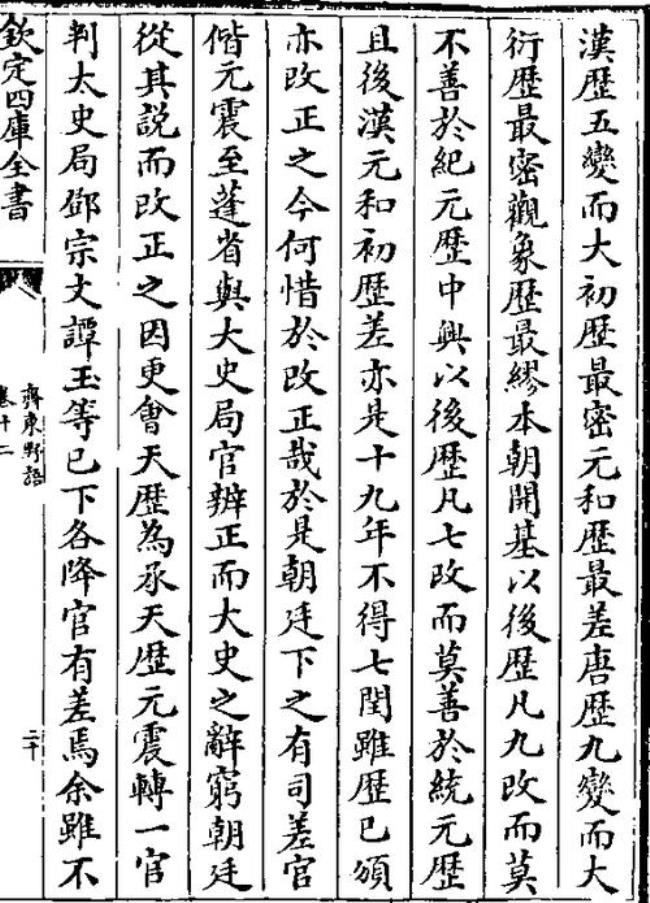 漢歴五變而大初歴最密元和歴最差唐歴九變而大
衍歴最密觀象歴最繆本朝開基以後歴凡九改而莫
不善於紀元歴中興以後歴凡七改而莫善於統元歴
且後漢元和初歴差亦是十九年不得七閏雖歴已頒
亦改正之今何惜於改正哉於是朝廷下之有司差官
偕元震至蓬省與大史局官辨正而大史之辭窮朝廷
從其説而改正之因更會天歴為承天歴元震轉一官
判太史局鄧宗文譚玉等已下各降官有差焉余雖不
欽定四庫全書
齊東野語
卷十二
二十